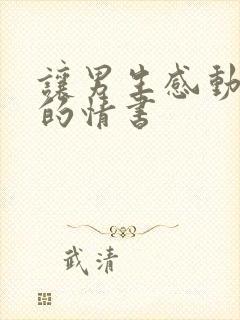 讓男生感動
的情書
武清